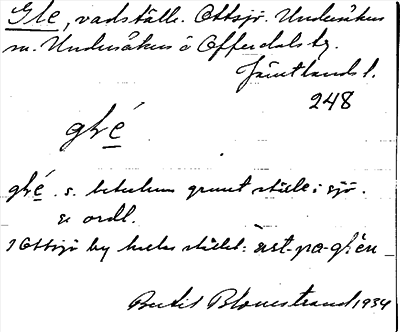 Gle, vadställe. Ottsjö. Undersåkers
sn. Undersåkers o Offerdals tg.
Jämtlands l.
248
glé
glé. s. betecknar grunt ställe i sjö.
se ordl.
I Ottsjö by heter stället: äst-på-glén
Bertil Blomstrand 1934